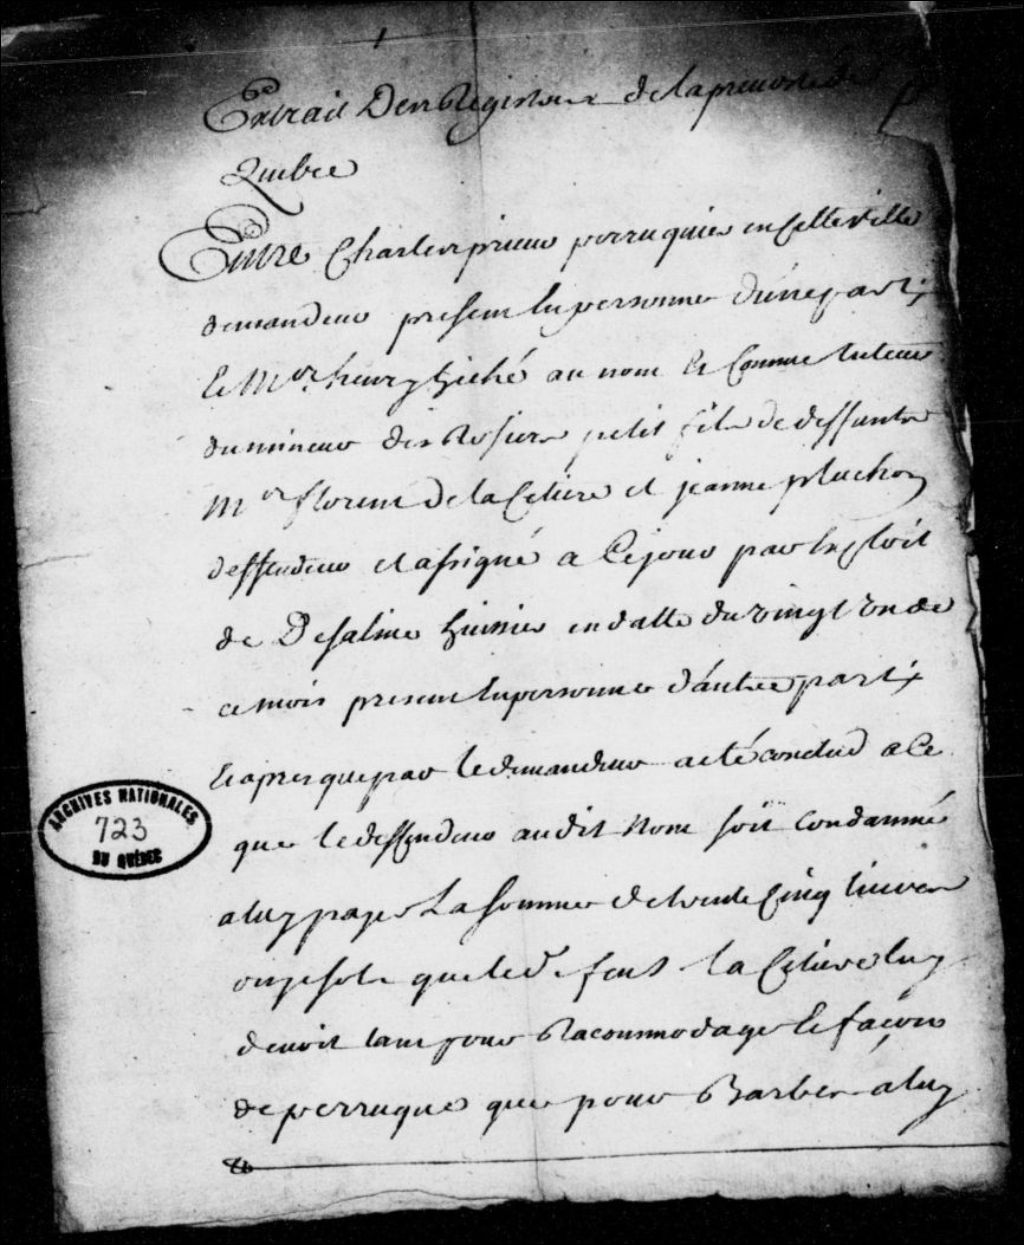 Extrait Des Registres de la prevosté de
Quebec
Entre Charles prieur perruquier en Cette ville
demandeur present En personne d'une part;
Et Mer. henry hiché au nom Et Comme tuteur
du mineur des Rosiers petit fils de deffunts
Mer florent de la Cetiere et jeanne pluchon
deffendeur et assigné a Ce jour par Exploit
de Desaline huissier en datte du vingt un de
ce mois present En personne d'autre part;
Et apres que par le demandeur a eté conclud a Ce
que le deffendeur au dit Nom soit Condamné
a luy payer La somme de trente Cinq livres
onze sols que led. feu S. la Cetiere luy
devoit tant pour Racommodage Et façons
de perruque que pour Barbes a luy
ARCHIVES NATIONALES
723
DU QUÉBEC